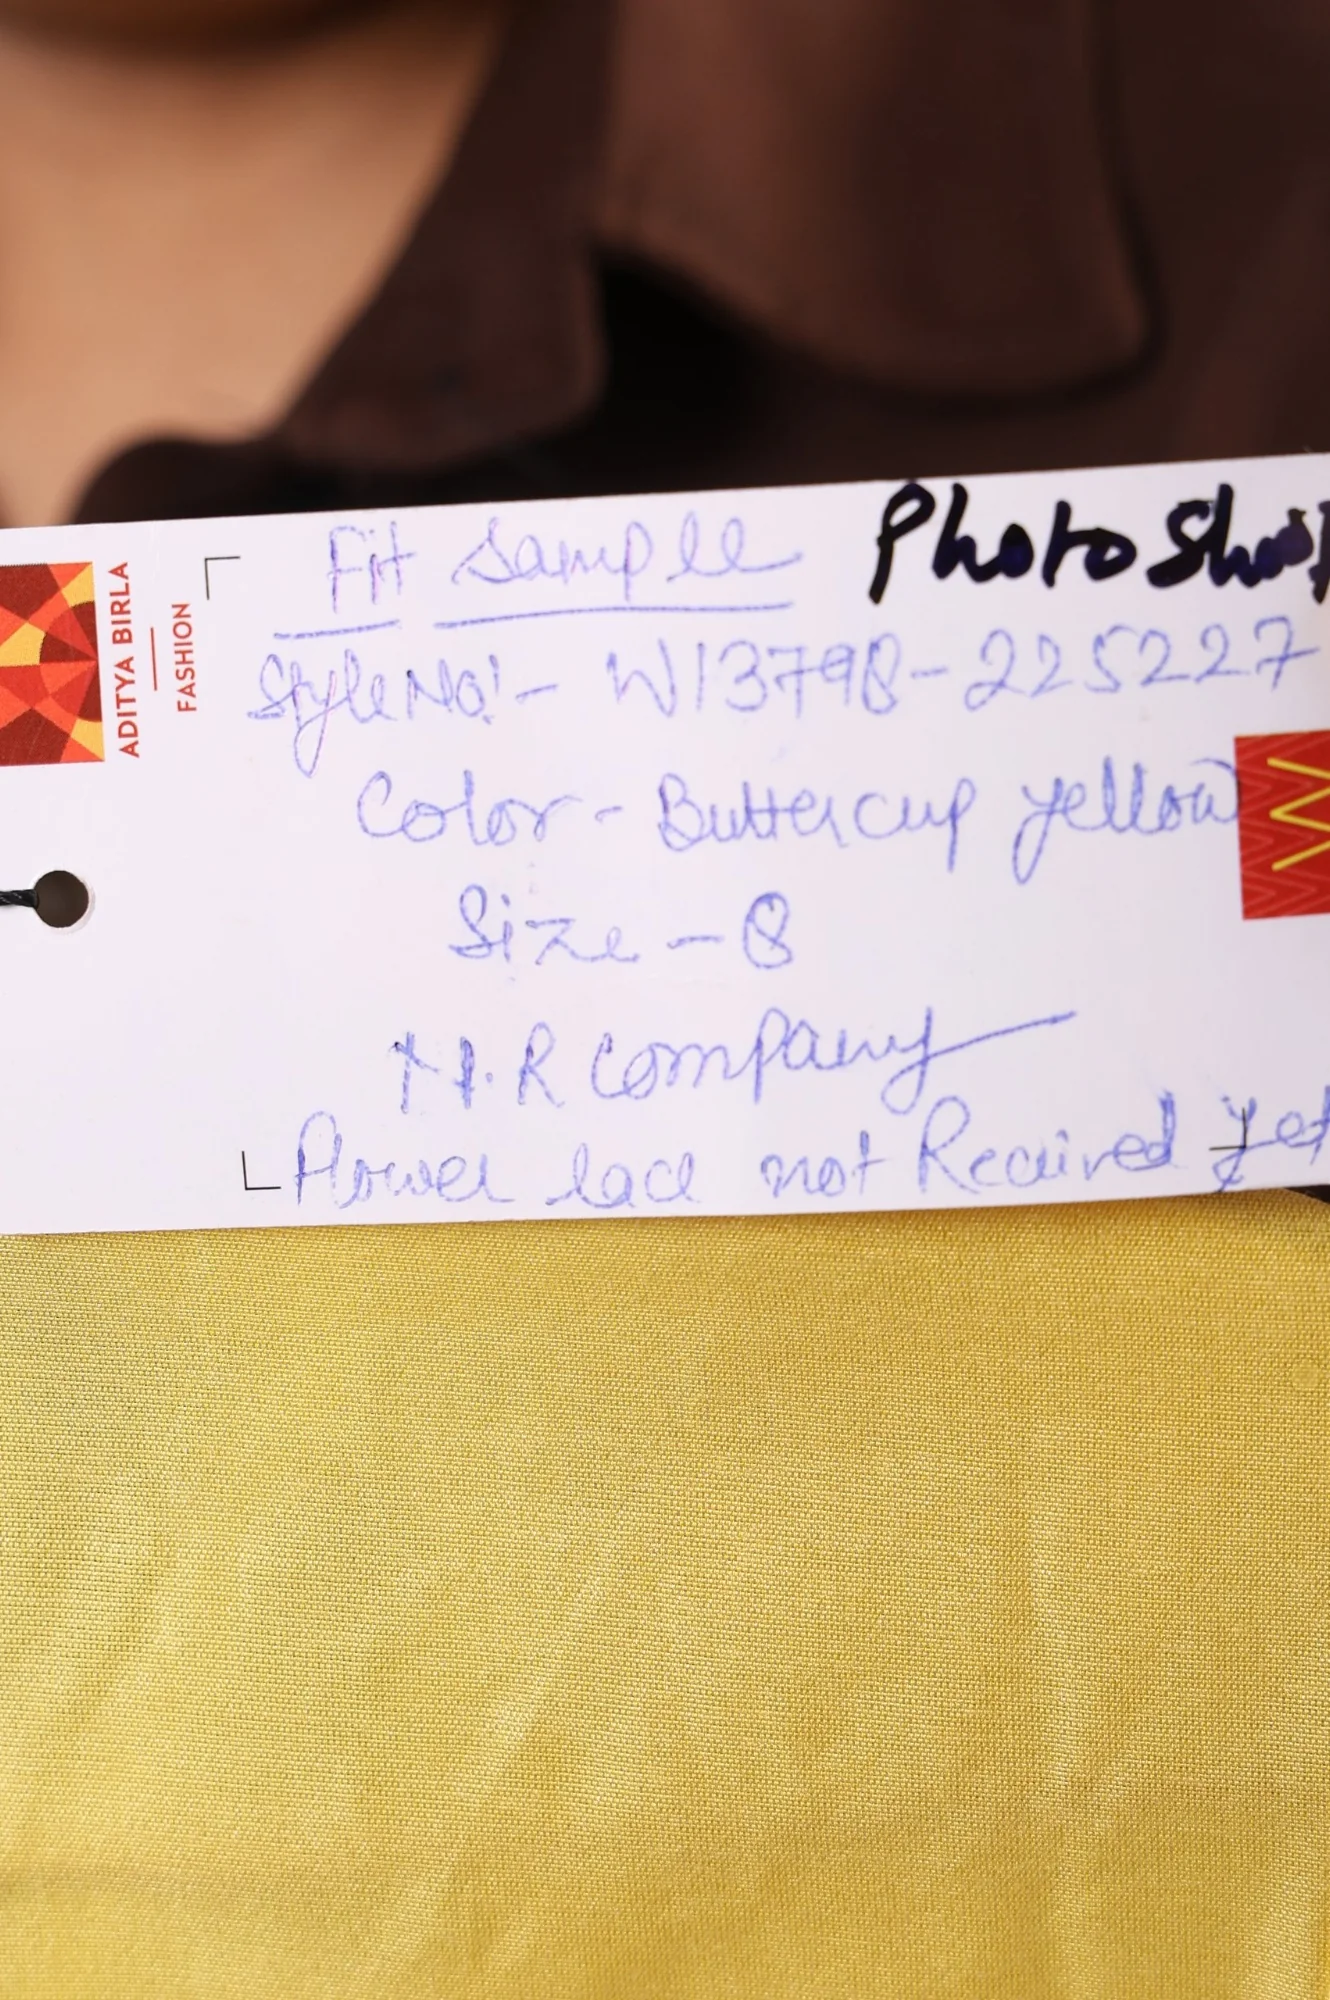 ADITYA BIRLA
FASHION
Fit Sample
PhotoShoot
Style No:- W13798-225227
Color - Buttercup yellow
W
Size - 8
H.R Company
Flower lace not Received yet